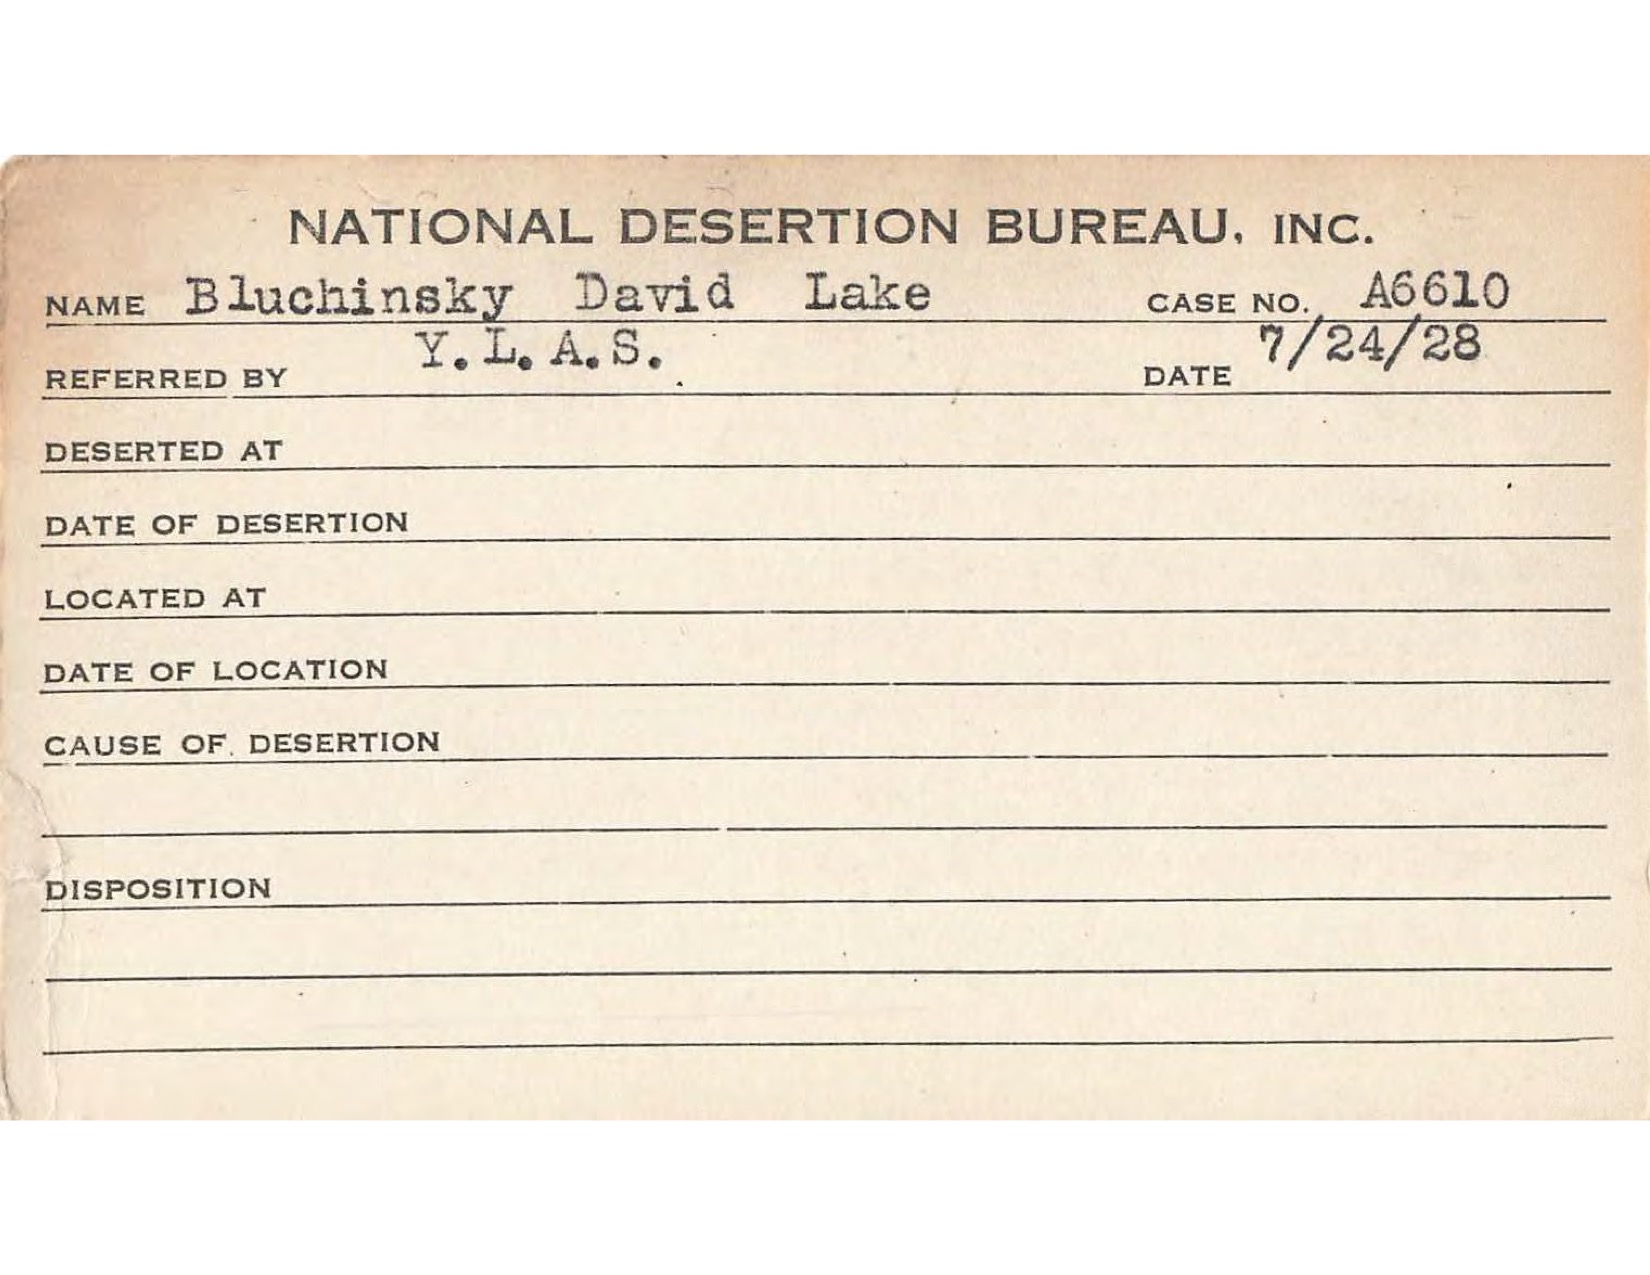 NATIONAL DESERTION BUREAU, INC.
NAME Bluchinsky David Lake CASE NO. A6610
REFERRED BY Y.L.A.S. DATE 7/24/28
DESERTED AT
DATE OF DESERTION
LOCATED AT
DATE OF LOCATION
CAUSE OF DESERTION
DISPOSITION